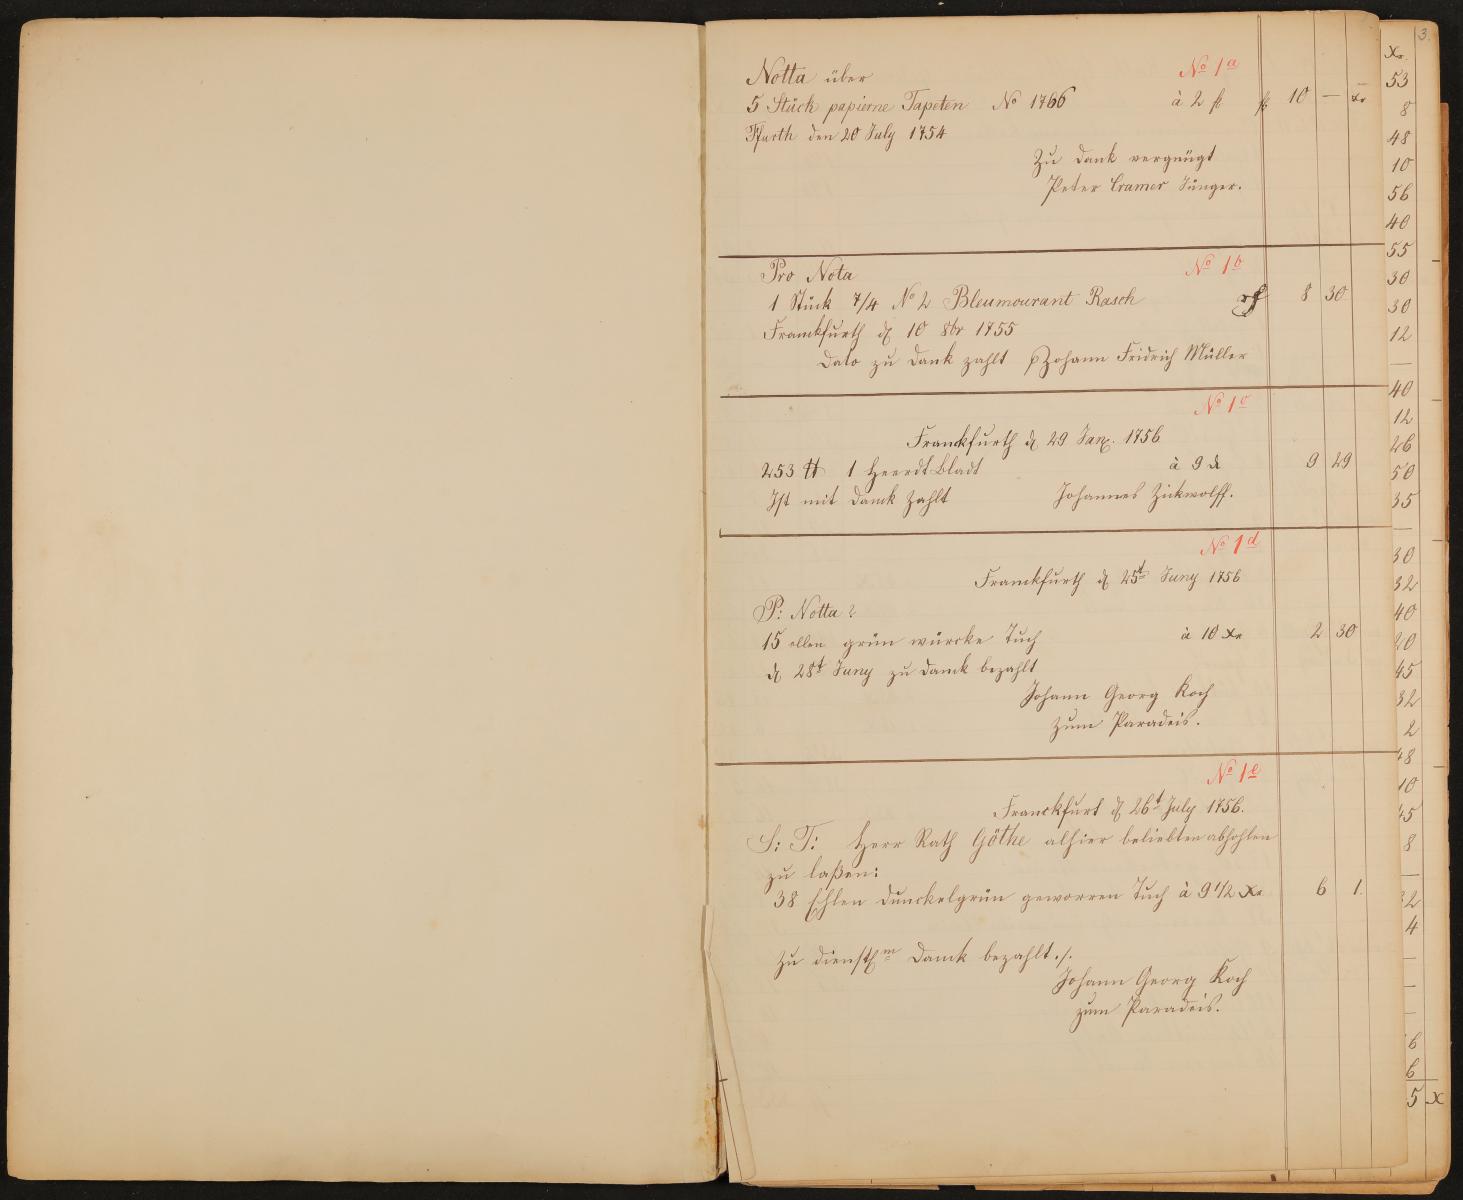 No 1a
Notta über
5 Stück papierne Tapeten No 1766 à 2 fl fl 10 — xr
Ffurth den 20 July 1754
Zu Dank vergnügt
Peter Cramer Jünger.
No 1b
Pro Nota
1 Stück 7/4 No 2 Bleumourant Rasch rf 8 30
Franckfurth d 10 8br 1755
Dato zu Dank zahlt Johann Fridrich Müller
No 1c
Franckfurth d 29 Jan. 1756
253 ℔ 1 Heerdt Bladt à 9 9 29
Ist mit Danck zahlt Johannes Zickwolff.
No 1d
Franckfurth d 25t Juny 1756
P: Notta
15 ellen grün würcke Tuch à 10 Xr 2 30
d 28t Juny zu Danck bezahlt
Johann Georg Koch
zum Paradeis.
No 1e
Franckfurt d 26t July 1756.
S: T: Herr Rath Göthe alhier beliebten abhohlen
zu laßen:
38 Ehlen dunckelgrün geworren Tuch à 9 1/2 Xr 6 1.
Zu dienstm Danck bezahlt ./.
Johann Georg Koch
zum Paradeis.
3.
Xr.
53
8
48
10
56
40
55
30
30
12
—
40
12
26
50
35
—
30
32
40
20
45
32
2
48
10
45
8
—
32
4
—
—
—
6
6
5 x